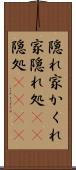 隠れ家かくれ
家隠れ処
隠処